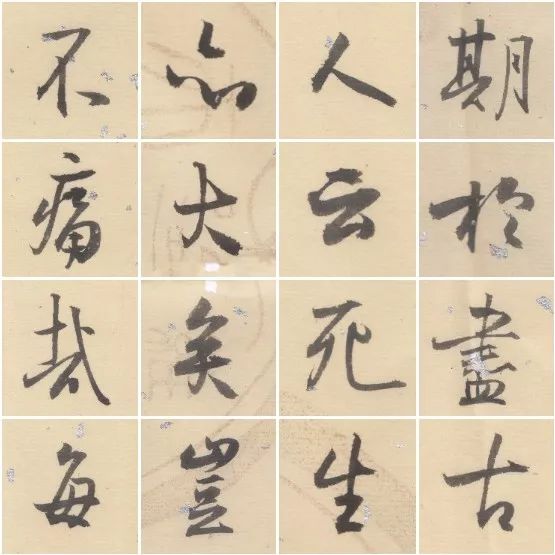 期於盡古
人云死生
亦大矣豈
不痛哉每